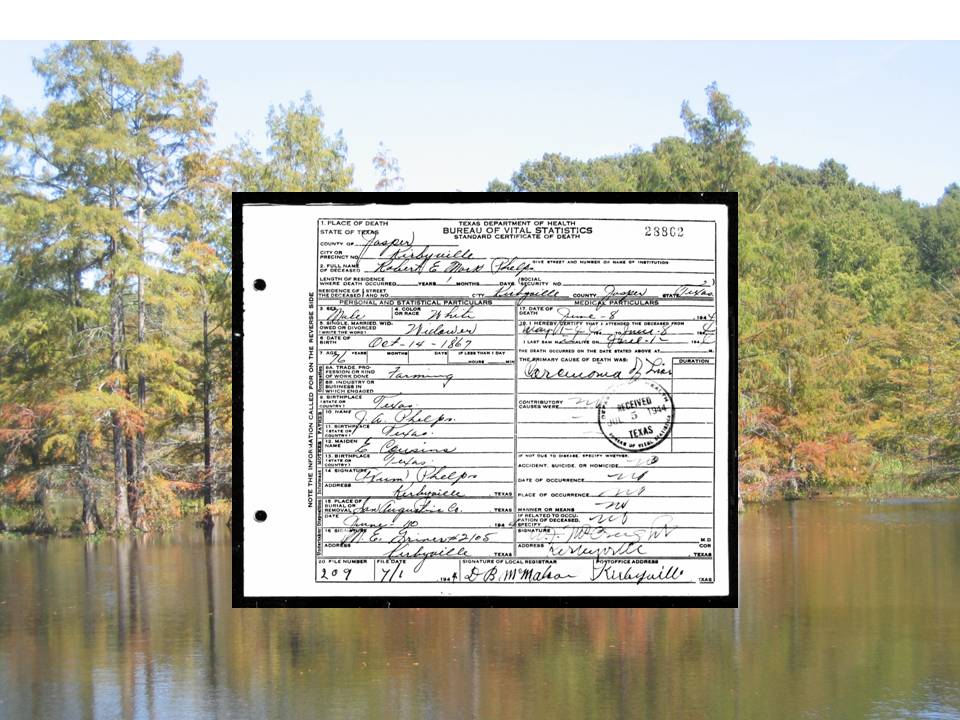 1. PLACE OF DEATH
STATE OF TEXAS
TEXAS DEPARTMENT OF HEALTH
BUREAU OF VITAL STATISTICS
STANDARD CERTIFICATE OF DEATH
28862
COUNTY OF Jasper
CITY OR PRECINCT NO. Kirbyville
GIVE STREET AND NUMBER OR NAME OF INSTITUTION
2. FULL NAME OF DECEASED Robert E Phelps
LENGTH OF RESIDENCE WHERE DEATH OCCURRED YEARS MONTHS DAYS SOCIAL SECURITY NO.
RESIDENCE OF THE DECEASED STREET AND NO. CITY Kirbyville COUNTY Jasper STATE Texas
PERSONAL AND STATISTICAL PARTICULARS
MEDICAL PARTICULARS
3. SEX Male
4. COLOR OR RACE White
17. DATE OF DEATH June - 8 1944
5. SINGLE, MARRIED, WIDOWED OR DIVORCED (WRITE THE WORD) Widower
18. I HEREBY CERTIFY THAT I ATTENDED THE DECEASED FROM
6. DATE OF BIRTH Oct - 14 - 1867
I LAST SAW ALIVE ON
THE DEATH OCCURRED ON THE DATE STATED ABOVE AT M.
7. AGE 76 YEARS MONTHS DAYS IF LESS THAN 1 DAY HOURS MIN
THE PRIMARY CAUSE OF DEATH WAS:
DURATION
8A. TRADE, PROFESSION OR KIND OF WORK DONE Farming
8B. INDUSTRY OR BUSINESS IN WHICH ENGAGED
9. BIRTHPLACE (STATE OR COUNTRY) Texas
CONTRIBUTORY CAUSES WERE:
RECEIVED
5 1944
TEXAS
BUREAU OF VITAL STATISTICS
10. NAME J. A. Phelps
11. BIRTHPLACE (STATE OR COUNTRY) Texas
12. MAIDEN NAME E Cousins
13. BIRTHPLACE (STATE OR COUNTRY) Texas
IF NOT DUE TO DISEASE, SPECIFY WHETHER:
ACCIDENT, SUICIDE, OR HOMICIDE no
14. SIGNATURE Phelps
DATE OF OCCURRENCE no
ADDRESS Kirbyville TEXAS
PLACE OF OCCURRENCE no
15. PLACE OF BURIAL OR REMOVAL San Augustine Co. TEXAS
MANNER OR MEANS no
DATE June - 10 194
IF RELATED TO OCCUPATION OF DECEASED, SPECIFY no
16. SIGNATURE E. Briner #2105
SIGNATURE M.D.
ADDRESS Kirbyville TEXAS
ADDRESS Kirbyville TEXAS
20. FILE NUMBER 209
FILE DATE 7/1 1944
SIGNATURE OF LOCAL REGISTRAR D B. McMahon
POSTOFFICE ADDRESS Kirbyville TEXAS
NOTE THE INFORMATION CALLED FOR ON THE REVERSE SIDE